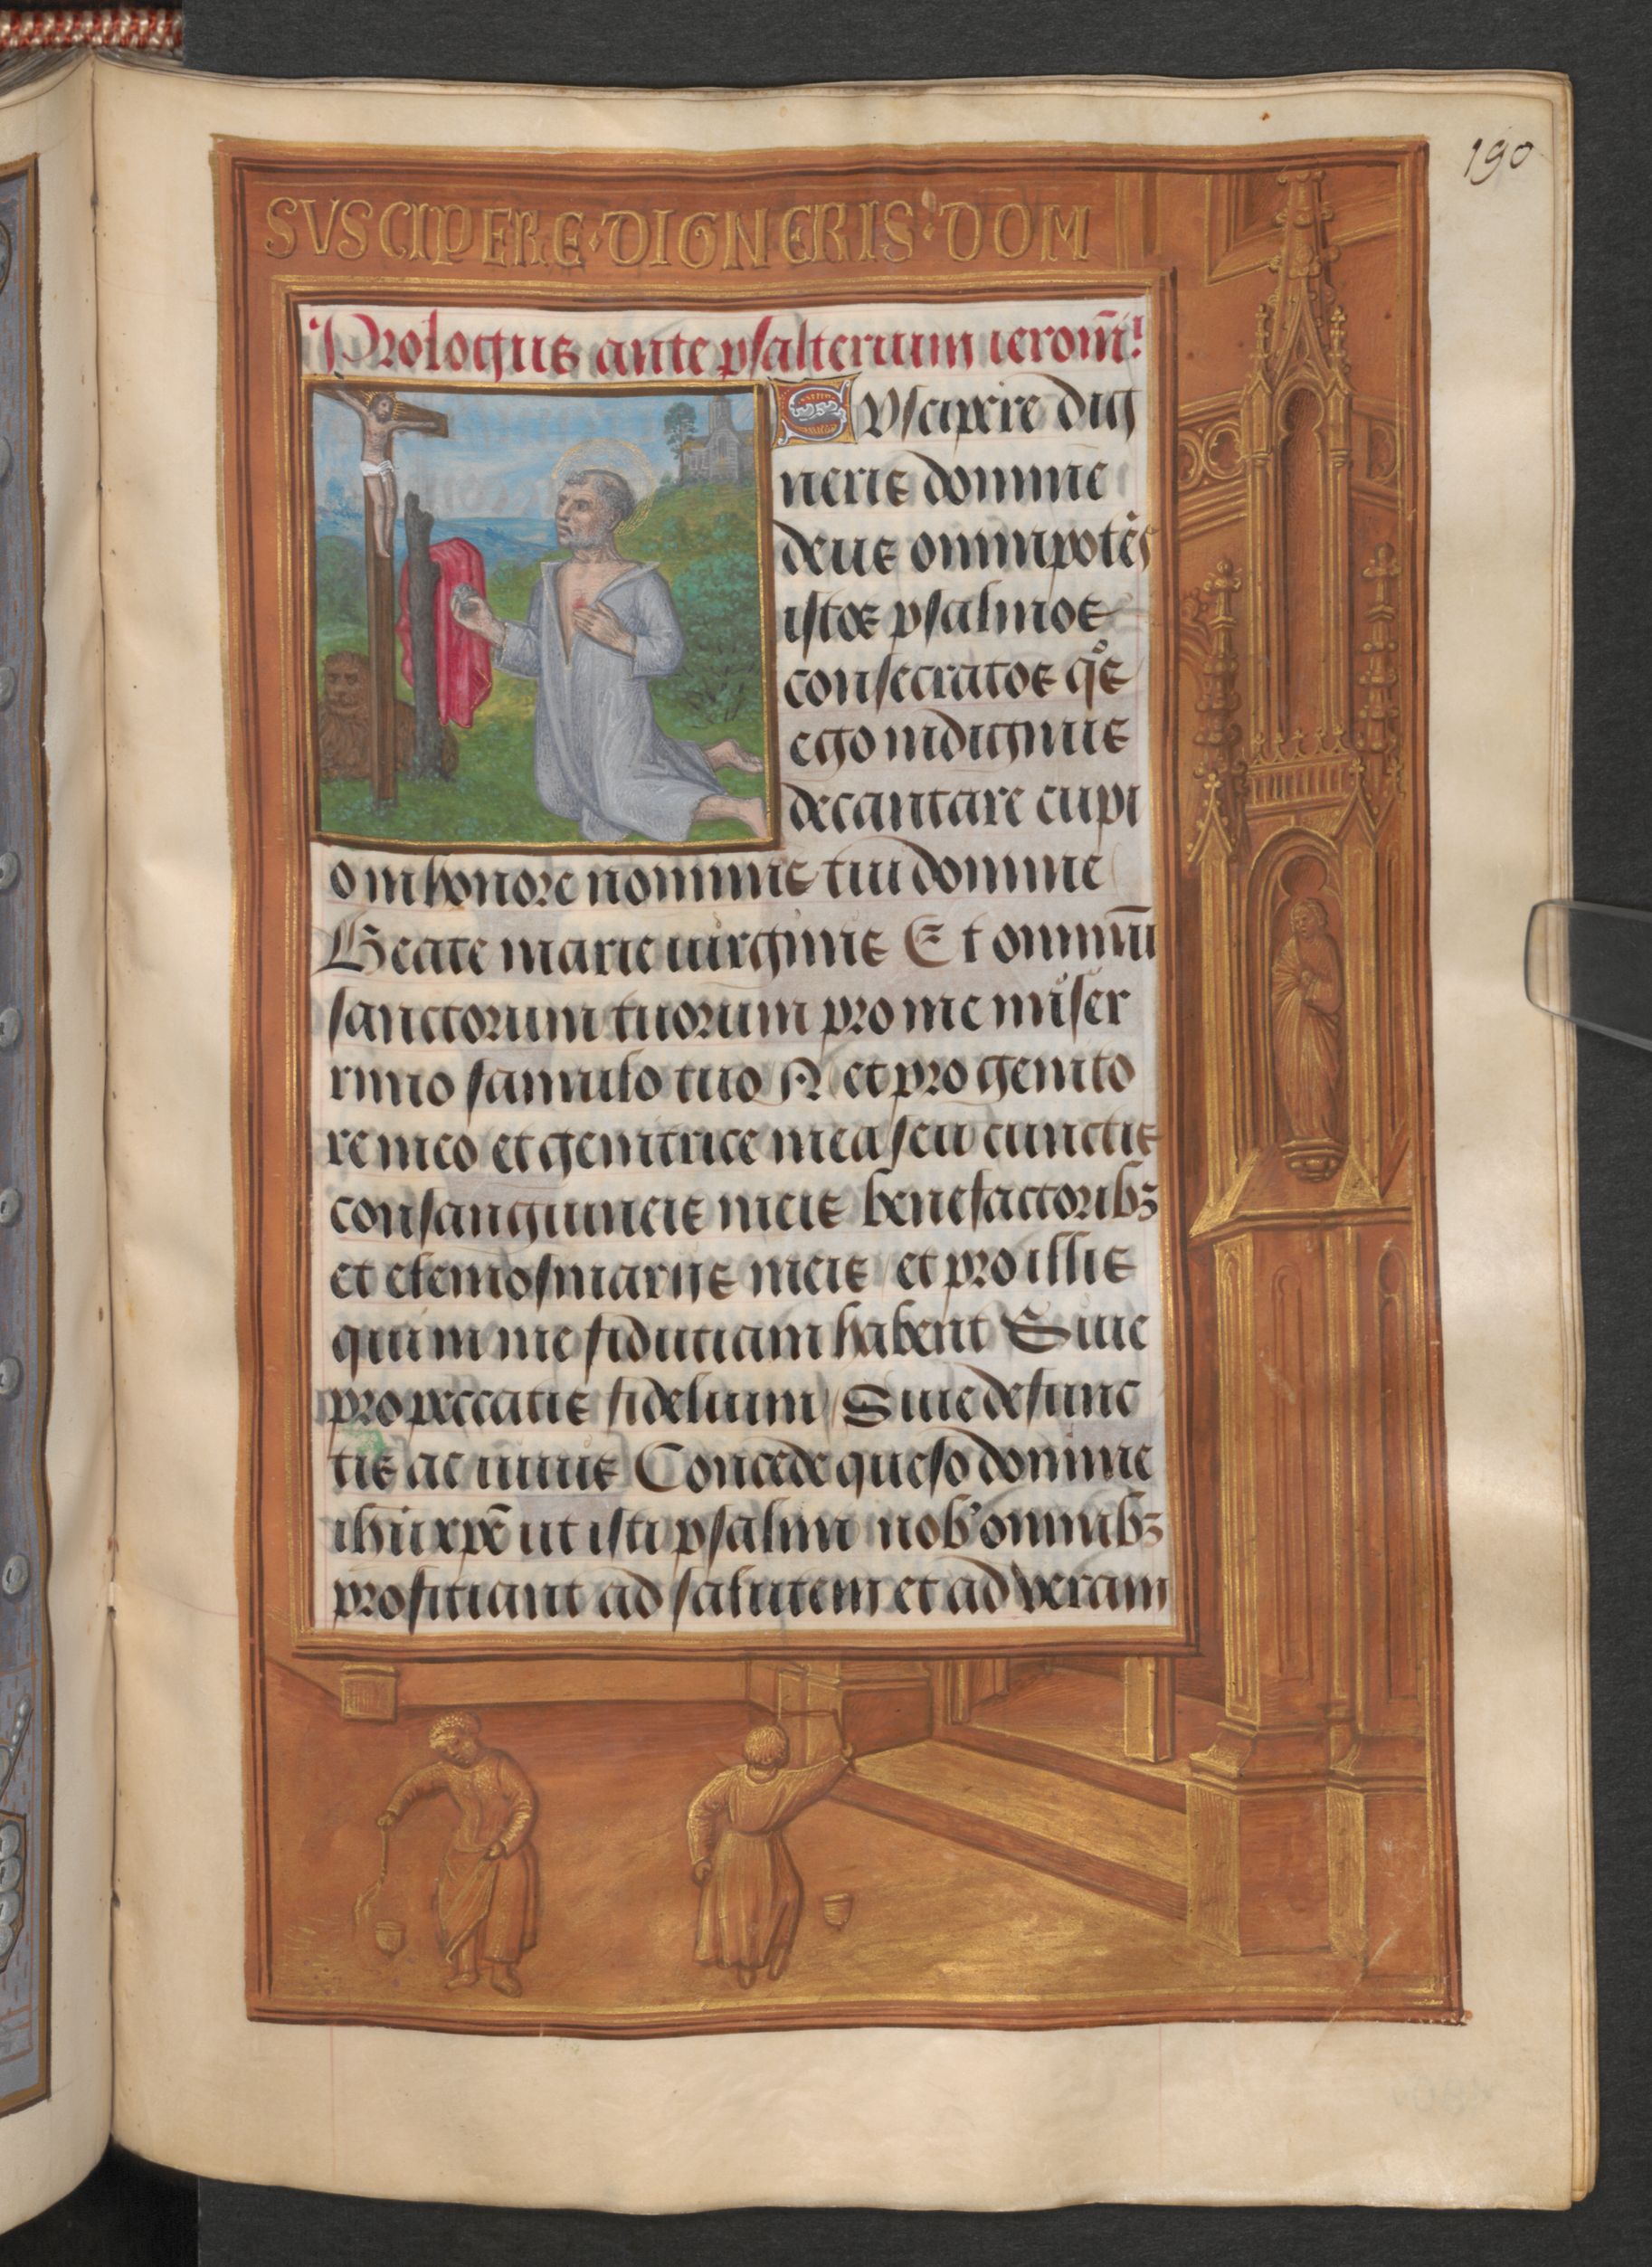 190
SVSCIPERE·DIGNERIS·DOM
Prologus ante psalterium ieronī!
SVscipere dig
neris domine
deus omnipotēs
istos psalmos
consecratos qͦs
ego indignus
decantare cupi
o in honore nominis tui domine
Beate marie uirginis Et omniū
sanctorum tuorum pro me miser
rimo famulo tuo N et pro genito
re meo et genitrice mea seu cunctis
consanguineis meis benefactoribꝫ
et elemosinariis meis et pro illis
qui in me fidutiam habent Siue
pro peccatis fidelium Siue defunc
tis ac uiuis Concede queso domine
ihū xp̄e ut isti psalmi nob' omnibꝫ
profitiant ad salutem et ad veram